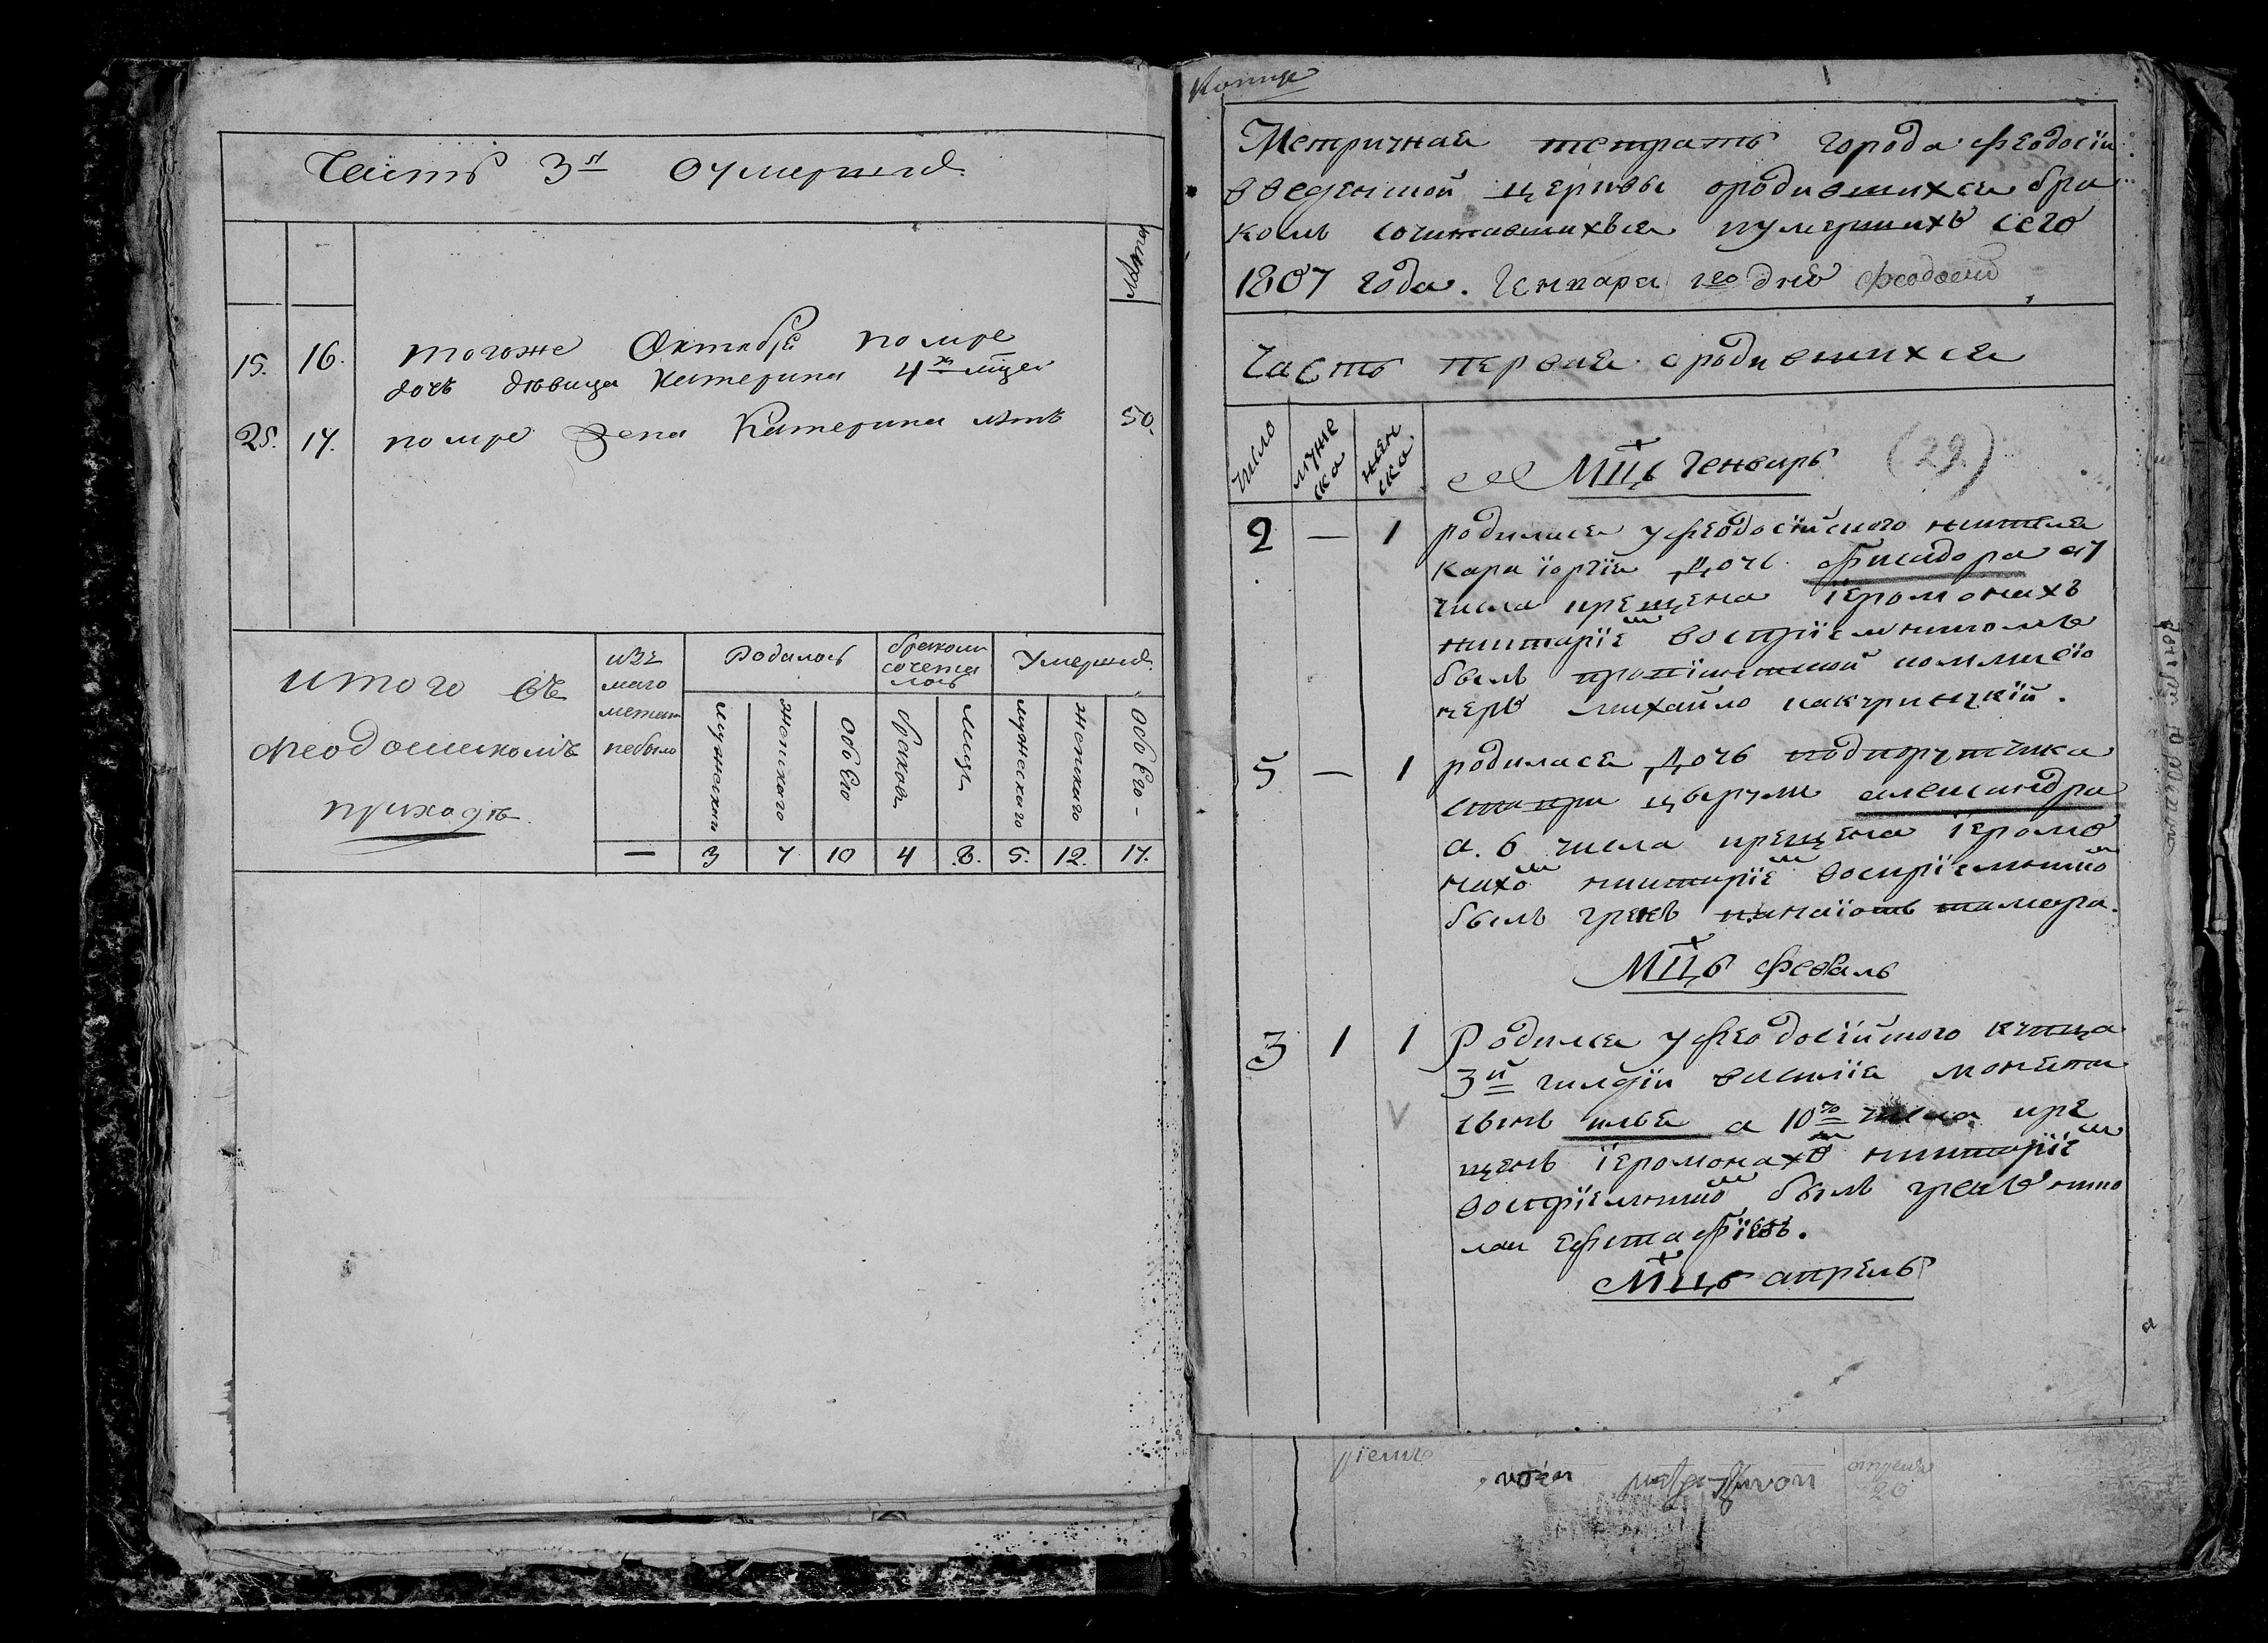 Часть 3я Оумершихъ
Лѣта
15. 16. тогоже Октября помре
дочь дѣвица Катерина 4хъ мцей
25. 17. помре жена Катерина лѣтъ 50.
итого въ
феодосииском
приходѣ
Родалось
бракомъ
сочета
лось
Умершихъ
мужескаго
женскаго
Обоего
браковъ
лицъ
мужескаго
женскаго
Обоего
— 3 7 10 4 8. 5. 12. 17.
Копия
1
Метричная тетрать города феодосіи
введенской церквы ородившихся бра
комъ сочитавшихъся иумершихъ сего
1807 года. Генваря 1го днѧ феодосия
Часть первая ородившихся
число
муже
ска
жен
ска
Мцъ Генварь (29)
2 — 1 родилася уфеодосійского жителя
кара іоргія дочь Фисидора а 7
числа крещена іеромонахъ
никтаріемъ воспріемникомъ
былъ коммисіо
неръ михайло
5 — 1 родилася дочь подпорутчика
александра
а. 6 числа крещена іеромо
нахомъ никтаріемъ воспріемникомъ
былъ грекъ панаіотъ тамара.
Мцъ феваль
3 1 1 Родился уфеодосійского купца
3й гилдіи василія
сынъ илья а 10го числа кре
щенъ іеромонахомъ никтаріемъ
воспріемникомъ былъ грекъ нико
лай
Мцъ апрель